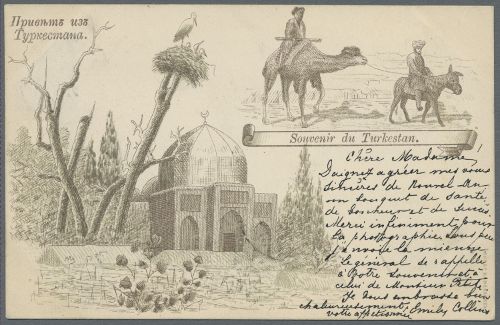 Привѣтъ изъ
Туркестана.
Souvenir du Turkestan.
Chère Madame!
Daignez agréer mes vœux
sincères de Nouvel An
un bouquet de santé,
de bonheur et de
Merci infiniment pour
la photographie. Sous peu
j'envoie la mienne
Le général se rappelle
à Votre souvenir et à
celui de Monsieur
Je vous embrasse bien
chaleureusement
votre affectionnée Emily Collins